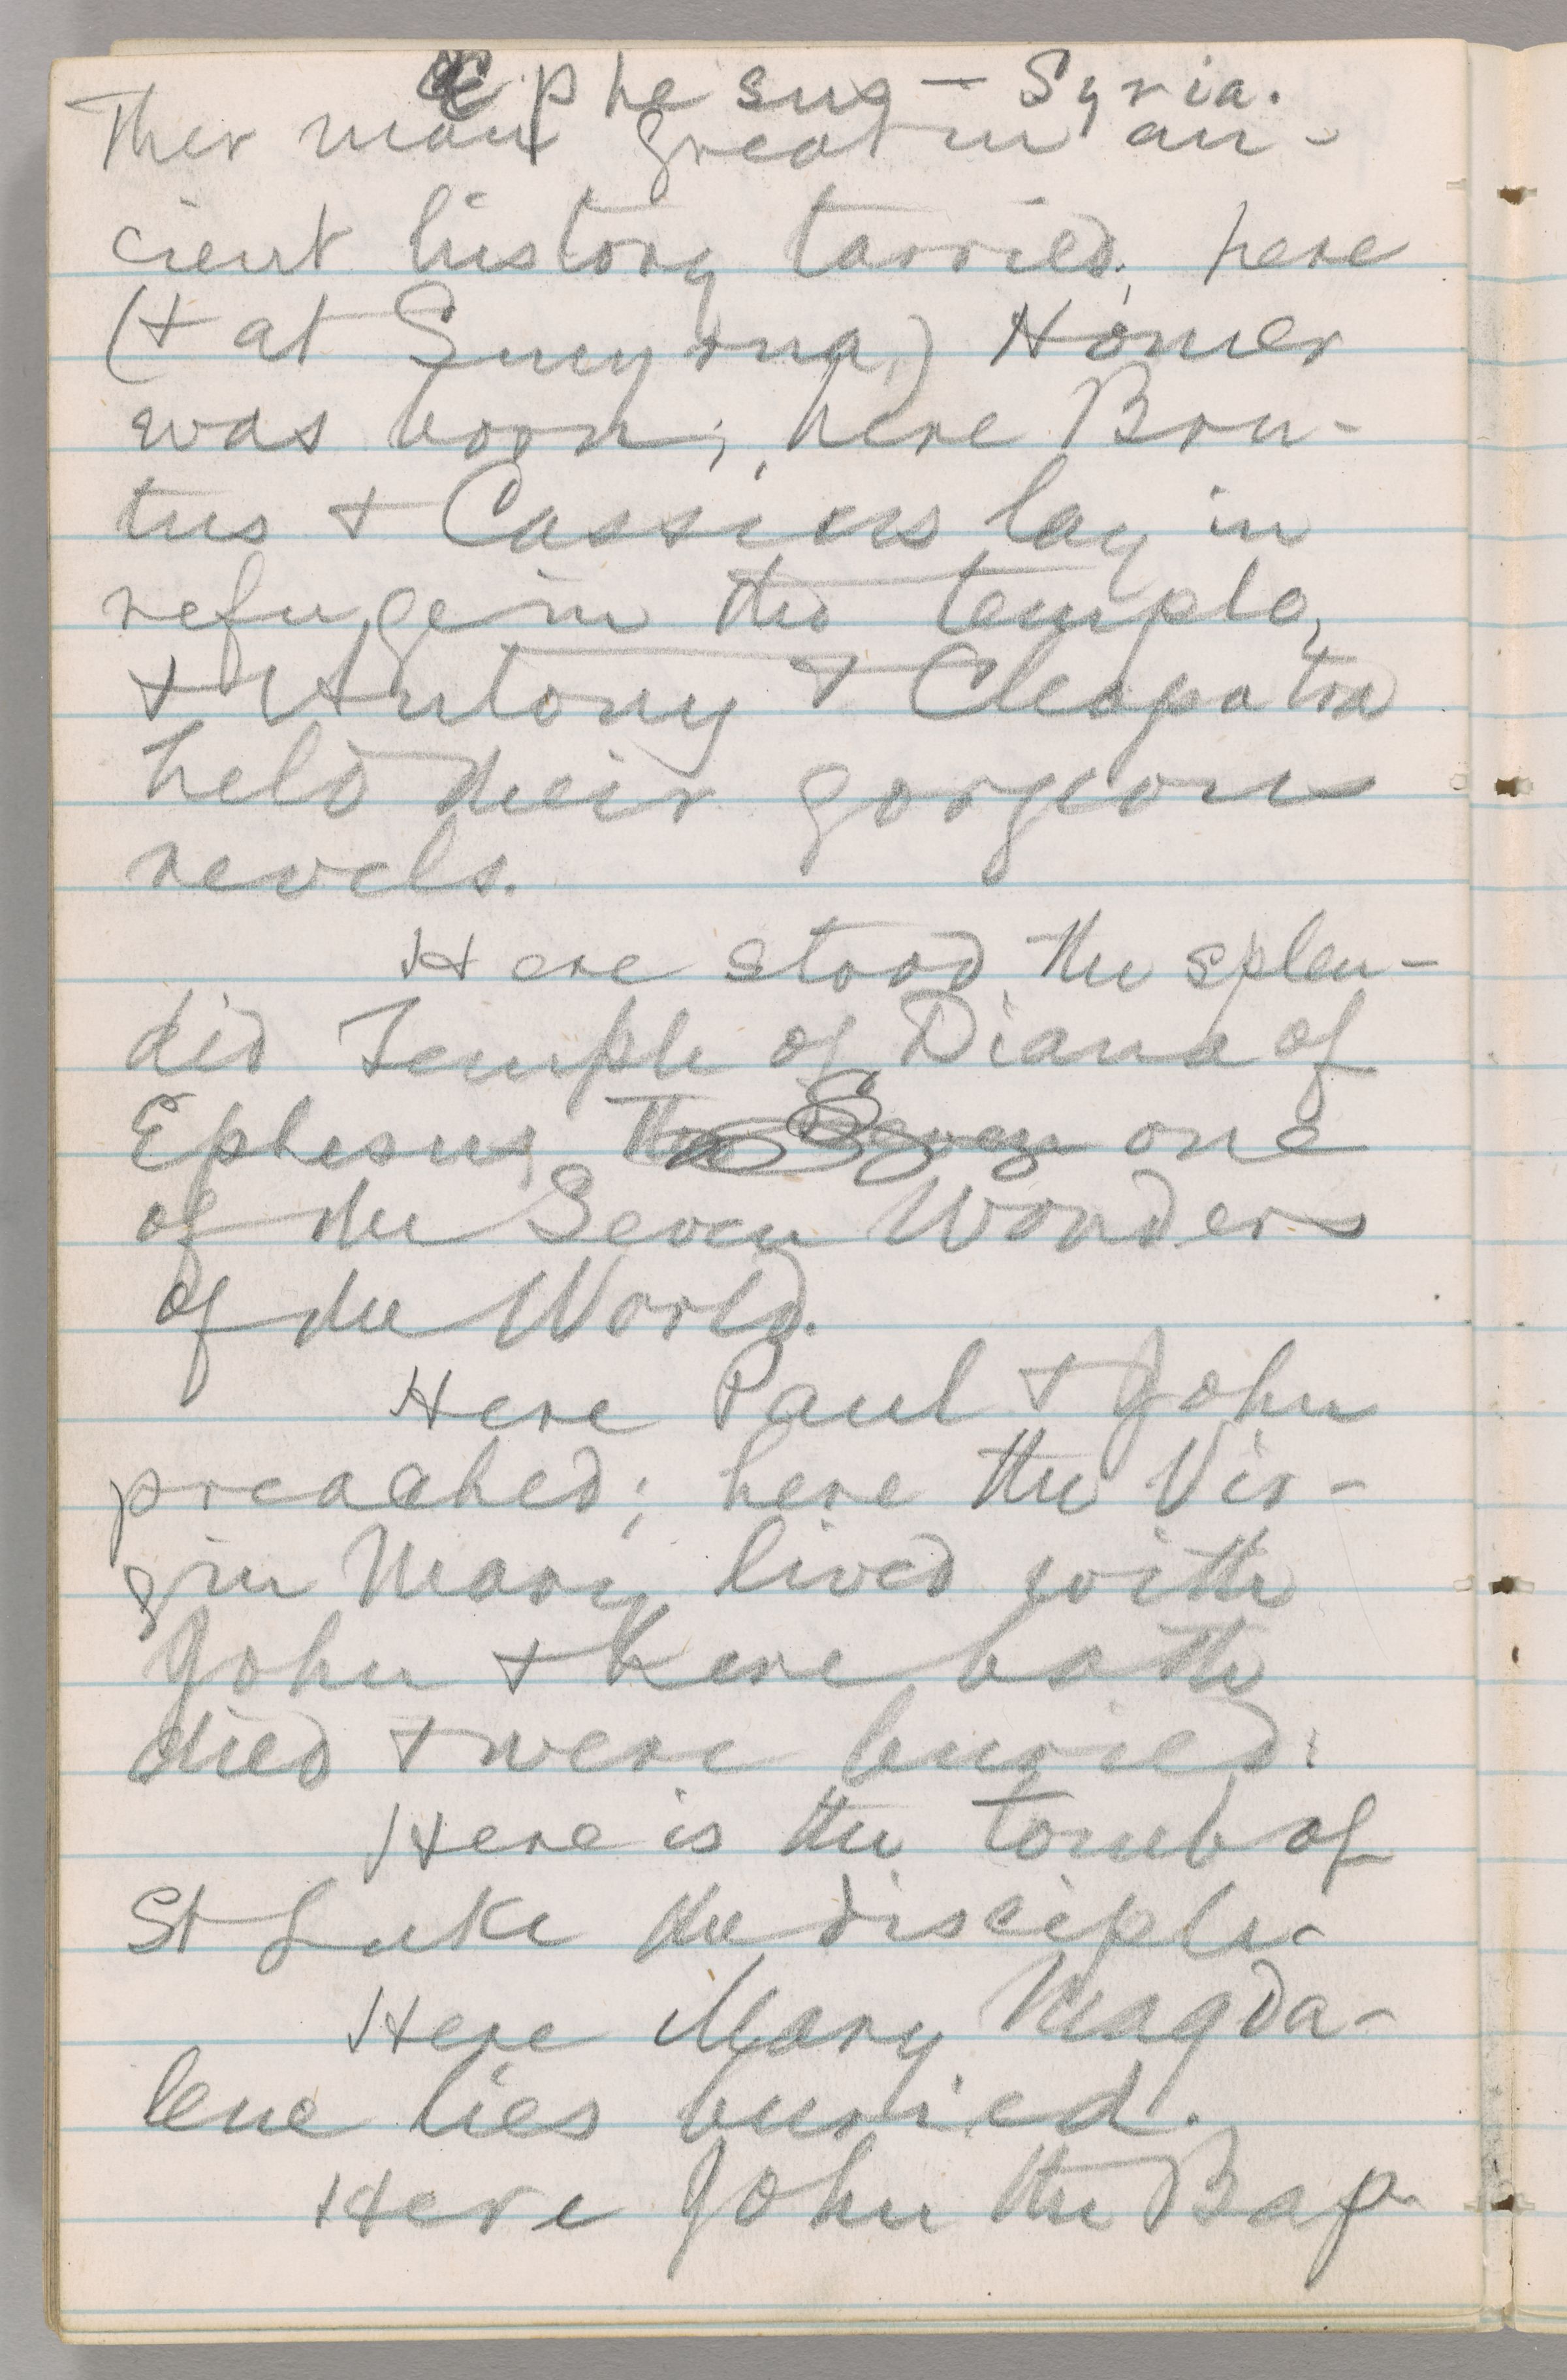 Ephesus — Syria.
Ther many great in an-
cient history tarried; here
(+ at Smyrna,) Homer
was born; here Bru-
tus + Cassius lay in
refuge in the temple,
+ Antony + Cleopatra
held their gorgeous
revels.
Here stood the splen-
did Temple of Diana of
Ephesus, the Seven one
of the Seven Wonders
of the World.
Here Paul + John
preached; here the Vir-
gin Mary lived with
John + here both
died + were buried:
Here is the tomb of
St Luke the disciple.
Here Mary Magda-
lene lies buried.
Here John the Bap-